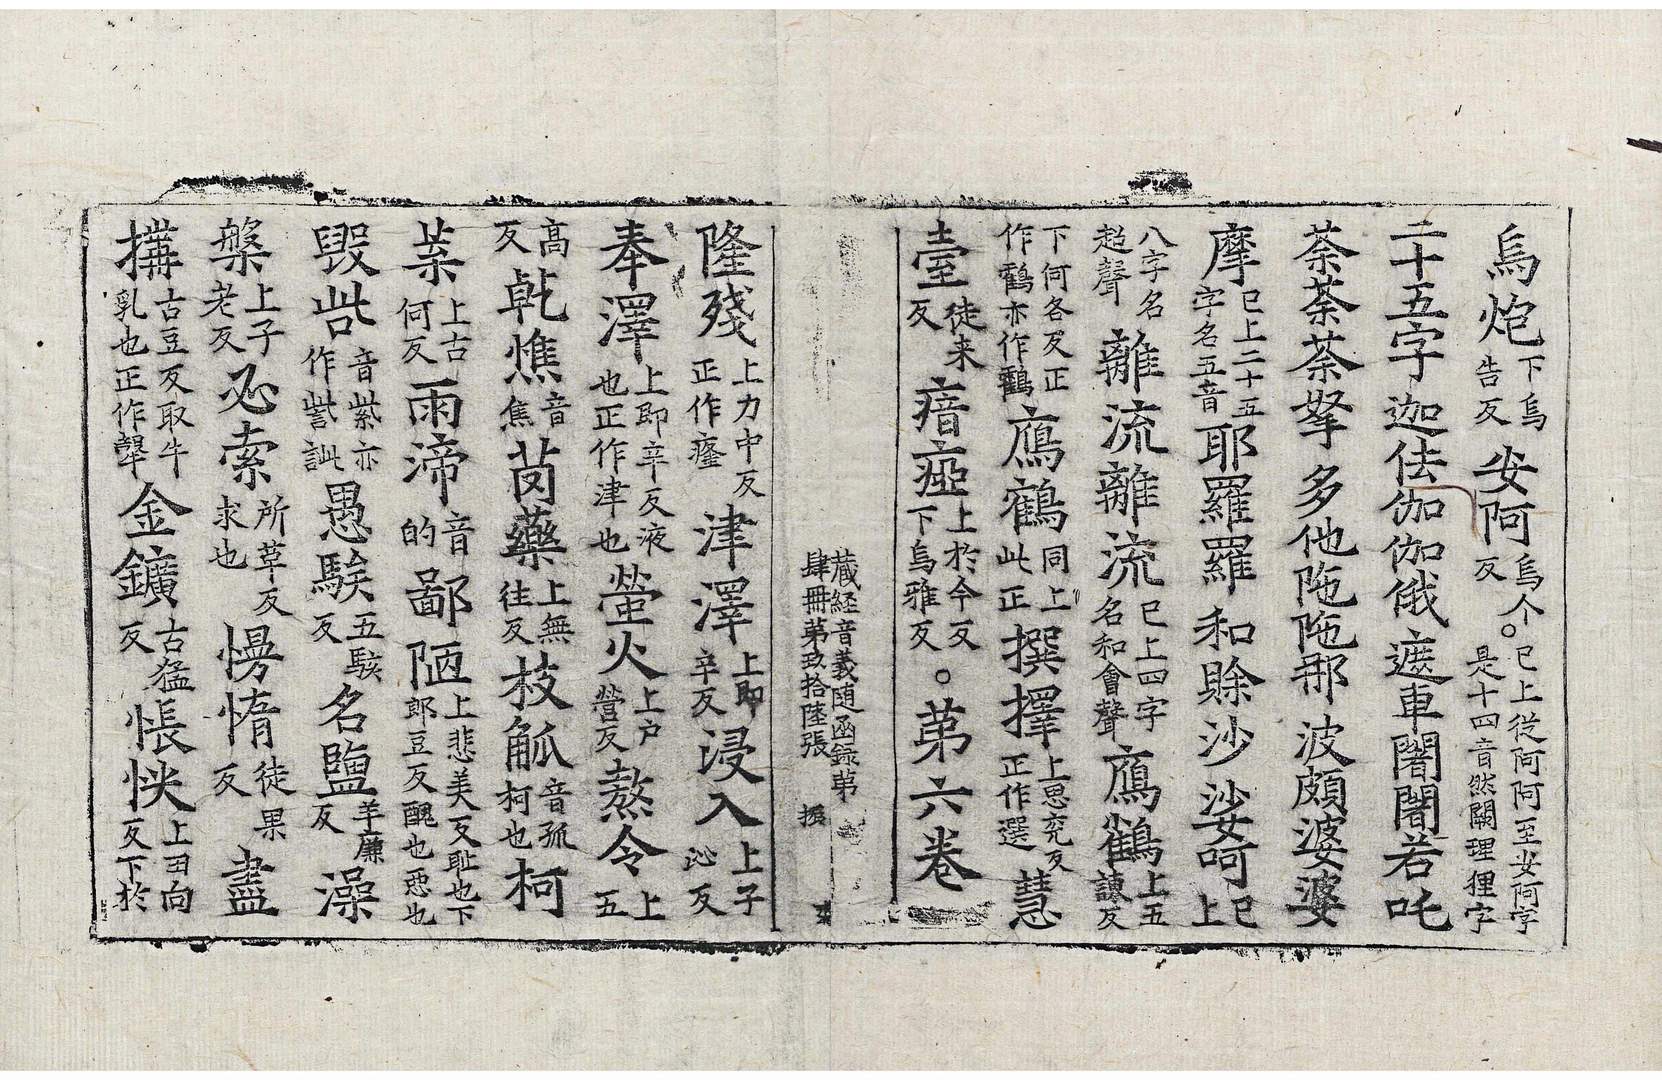 烏炮下烏告反㚢阿烏个反。已上從阿阿至㚢阿字是十四音然闕理狸字
二十五字迦佉伽伽俄遮車闍闍若吒
荼荼荼拏多他陁陁那波頗婆婆
摩已上二十五字名五音耶羅羅和賒沙娑呵已上
八字名超聲離流離流已上四字名和會聲鴈鶴上五諫反
下何各反正作鶴亦作鸖鴈鶴同上此正撰擇上思兖反正作選慧
臺徒来反瘖瘂上於今反下烏雅反。苐六卷
藏経音義随函録苐肆冊苐玖拾陸張
隆殘上力中反正作癃津澤上即辛反浸入上子沁反
奉澤上即辛反液也正作津也螢火上户營反熬令上五
高反乹燋音焦𦬆藥上無往反枝觚音孤柯也柯
菒上古何反雨渧音的鄙陋上悲美反耻也下郎豆反醜也惡也
毀呰音紫亦作訾訿愚騃五駭反名鹽羊廉反澡
槃上子老反必索所草反求也慢惰徒果反盡
搆古豆反取牛乳也正作𤚼金鑛古猛反悵怏上丑向反下於